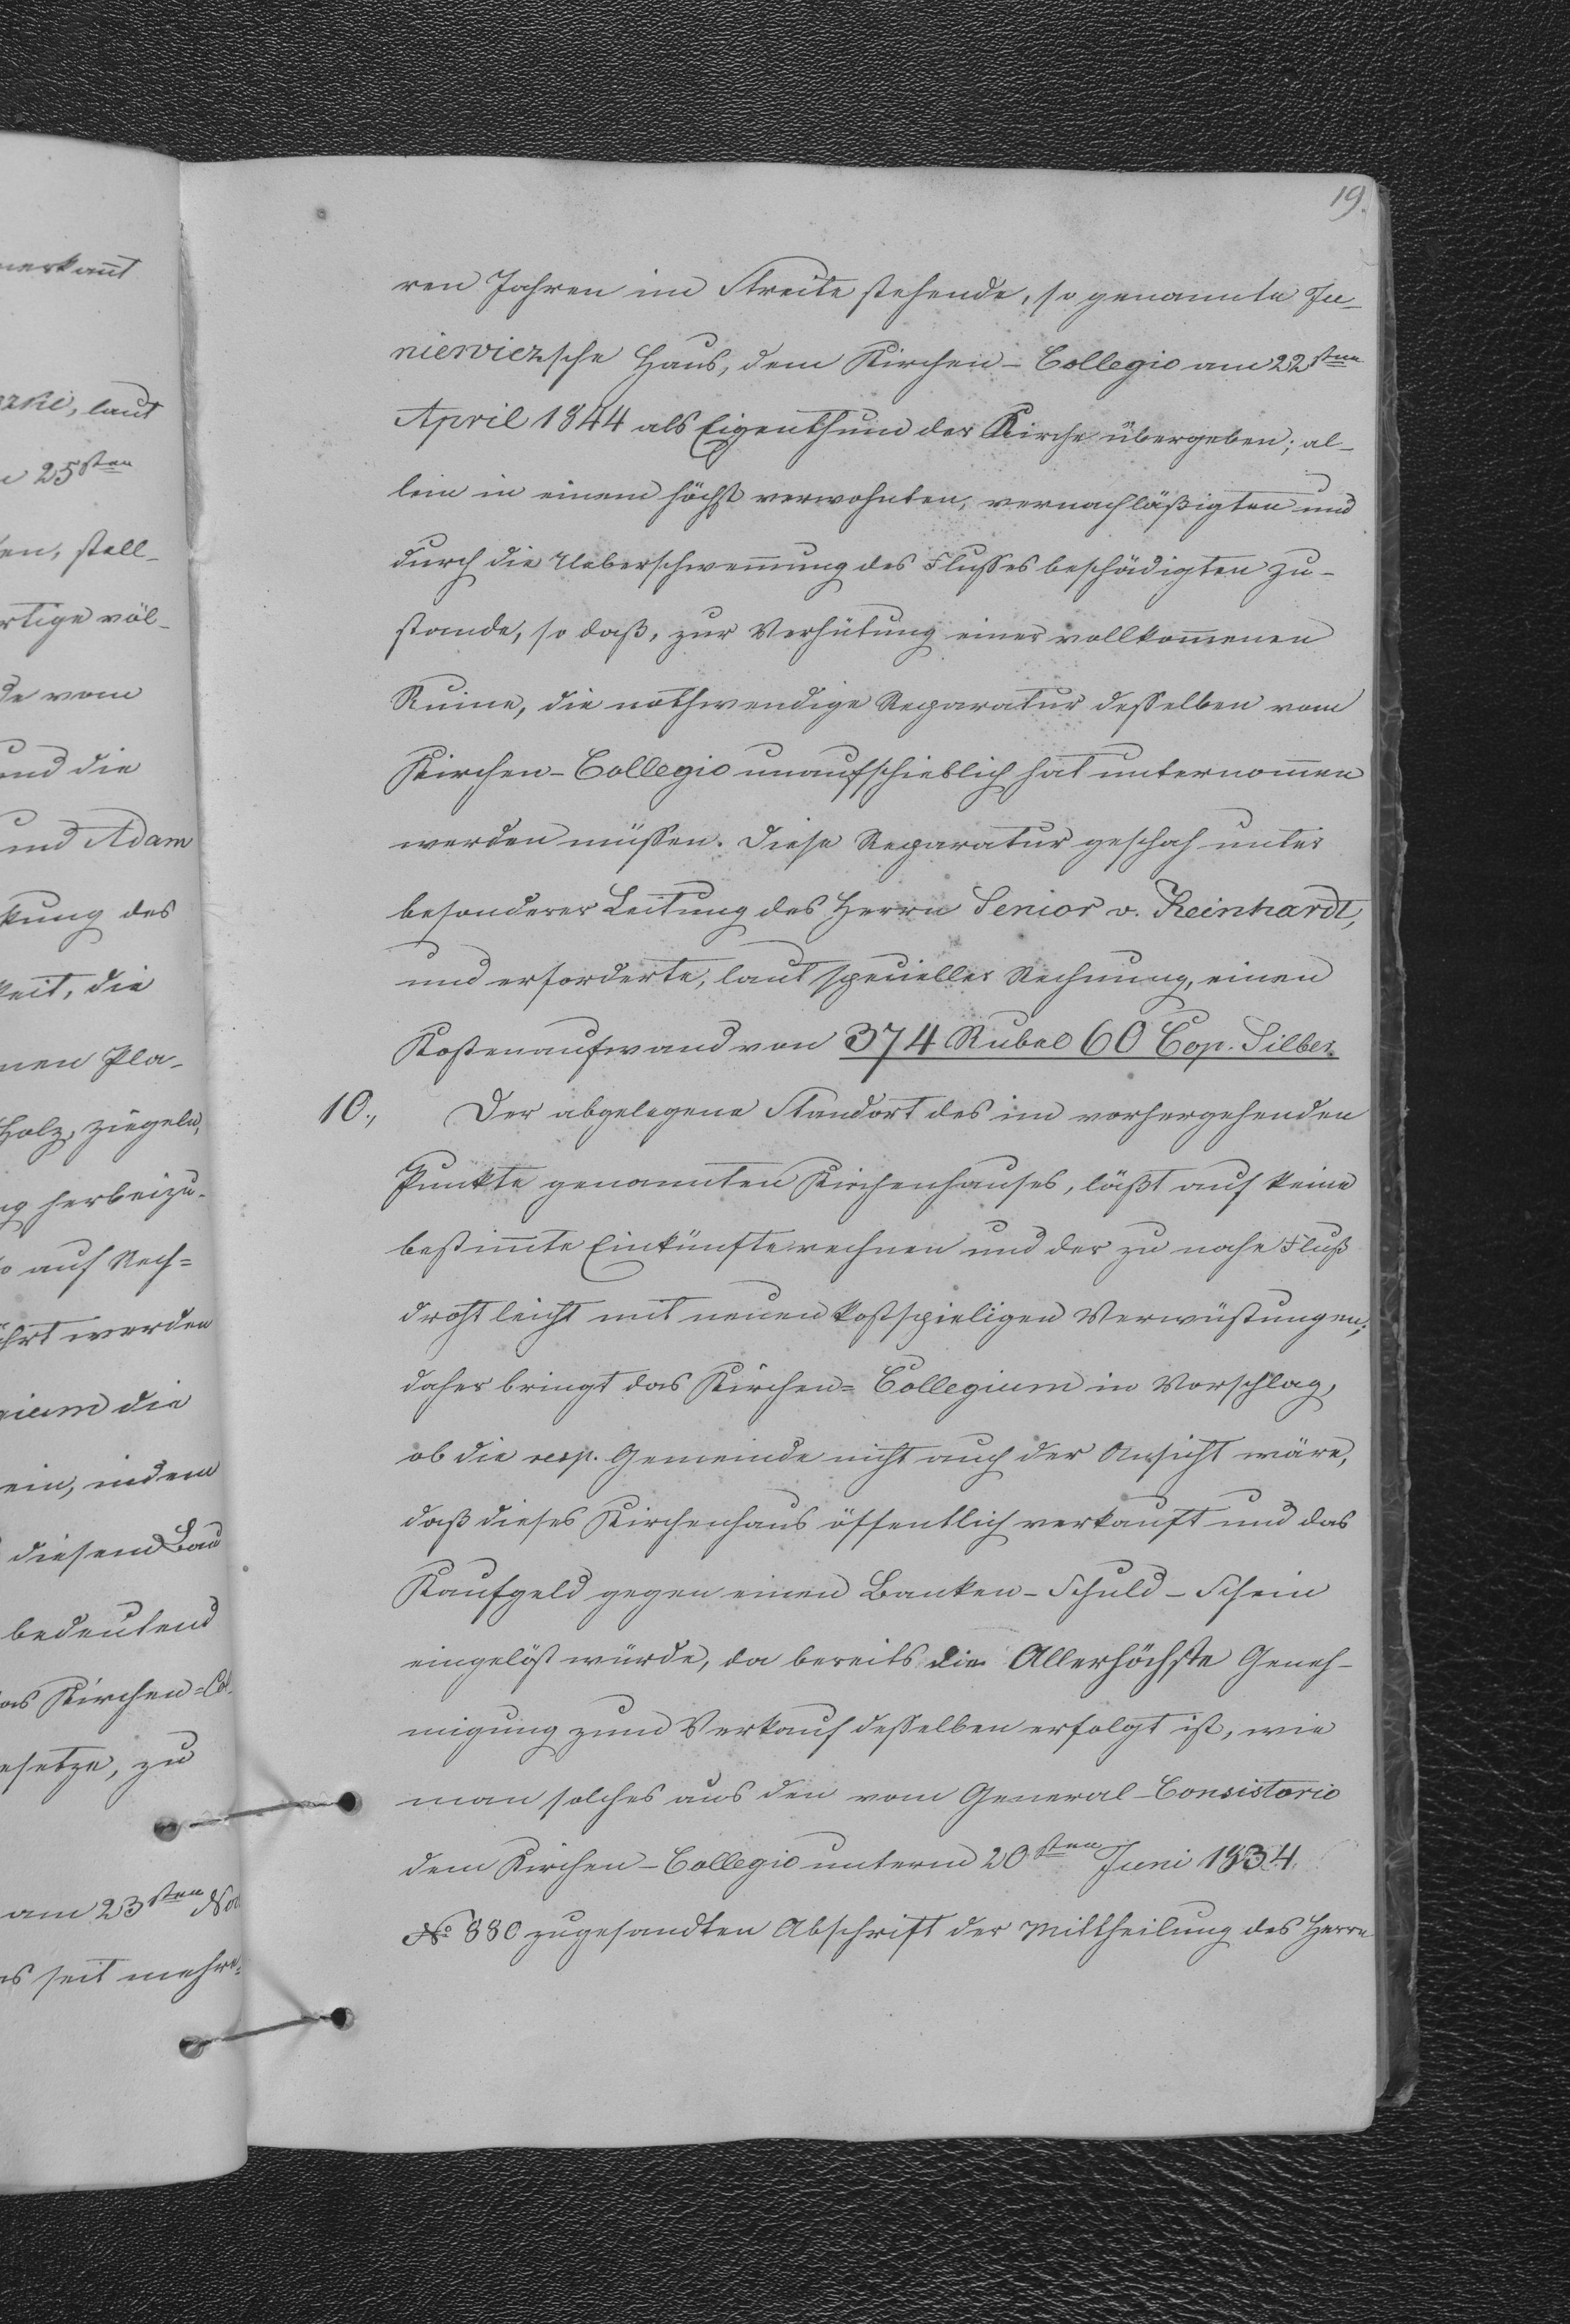 19.
ren Jahren im Streite stehende, so genannte Ju-
niewiczsche Haus, dem Kirchen-Collegio am 22sten
April 1844 als Eigenthum der Kirche übergeben; al-
lein in einem höchst verwohnten, vernachläßigten und
durch die Ueberschwem̅ung des Flusses beschädigten Zu-
stande, so daß, zur Verhütung einer vollkom̅enen
Ruine, die nothwendige Reparatur desselben vom
Kirchen-Collegio unaufschieblich hat unternom̅en
werden müssen. Diese Reparatur geschah unter
besonderer Leitung des Herrn Senior v. Reinhardt,
und erforderte, laut specieller Rechnung, einen
Kostenaufwand von 374 Rubel 60 Cop. Silber.
10., Der abgelegene Standort des im vorhergehenden
Punkte genannten Kirchenhauses, läßt auf keine
bestim̅te Einkünfte rechnen und der zu nahe Fluß
droht leicht mit neuen kostspieligen Verwüstungen;
daher bringt das Kirchen=Collegium in Vorschlag,
ob die resp. Gemeinde nicht auch der Ansicht wäre,
daß dieses Kirchenhaus öffentlich verkauft und das
Kaufgeld gegen einen Banken-Schuld-Schein
eingelöst würde, da bereits die Allerhöchste Geneh-
migung zum Verkauf desselben erfolgt ist, wie
man solches aus den vom General-Consistorio
dem Kirchen-Collegio unterm 20sten Juni 1834
№ 880 zugesandten Abschrift der Mittheilung des Herrn
erkan̅t
laut
25sten
stell-
völ-
vom
und die
und Adam
des
die
Pla-
Holz, Ziegeln,
herbeizu-
auf Rech=
werden
die
indem
diesem Bau
bedeutend
Kirchen=Col-
zu
am 23sten
seit mehre=